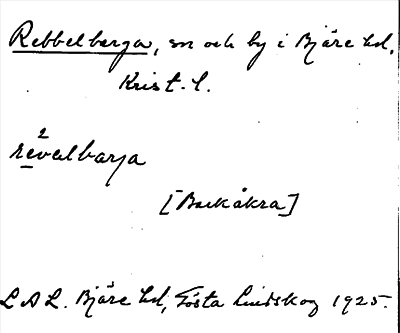 Rebbelberga, sn och by i Bjäre hd,
Krist. l.
2
revalbarja
[Barkåkra]
L A L. Bjäre hd, Gösta Lindskog 1925.